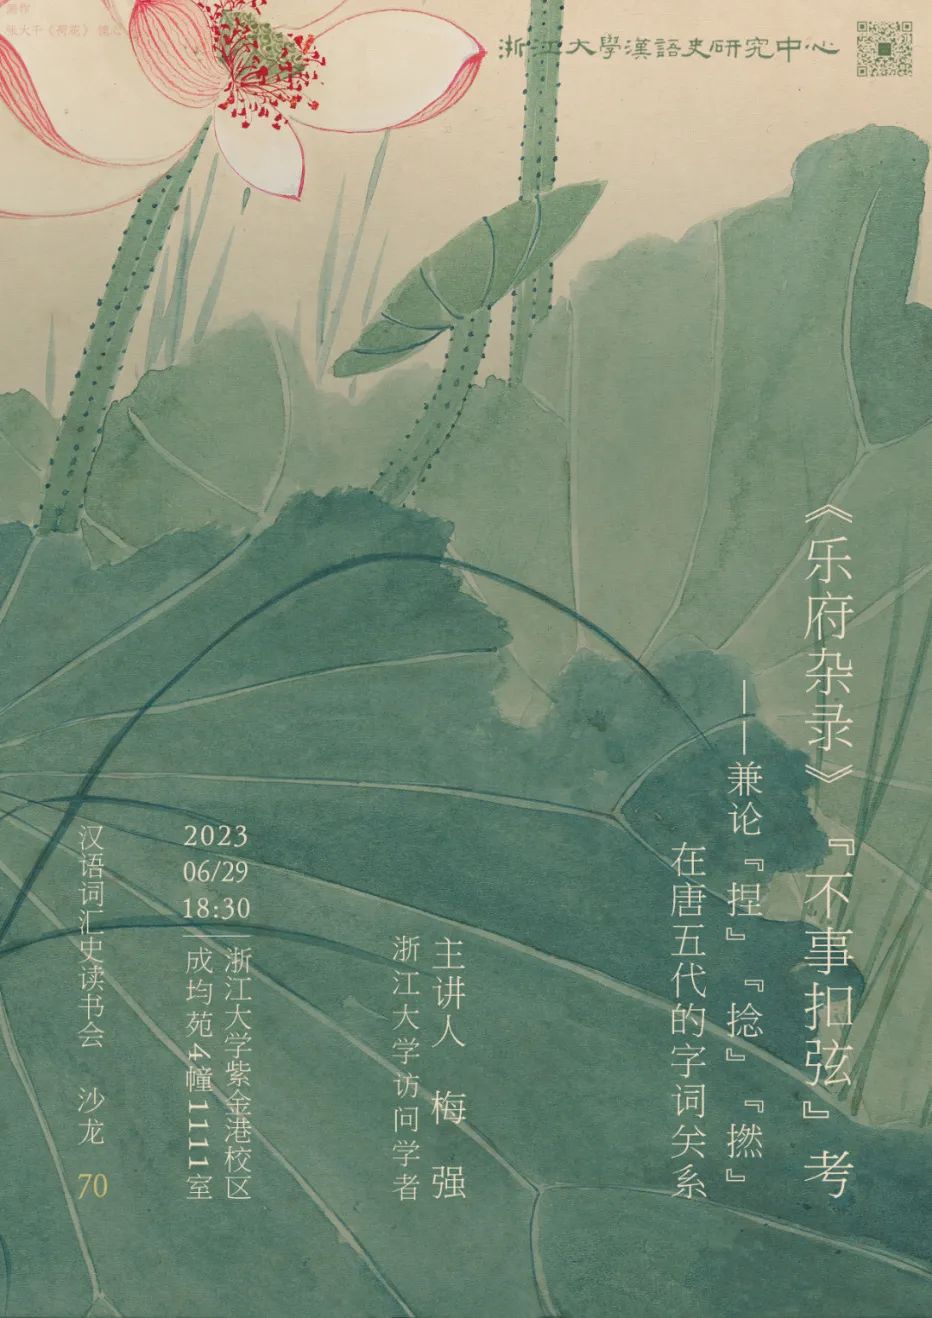 浙江大學漢語史研究中心
《乐府杂录》『不事扣弦』考
——兼论『捏』『捻』『撚』
在唐五代的字词关系
主讲人 梅 强
浙江大学访问学者
2023
06/29
18:30
浙江大学紫金港校区
成均苑4幢1111室
汉语词汇史读书会 沙龙 70
张大千《荷花》